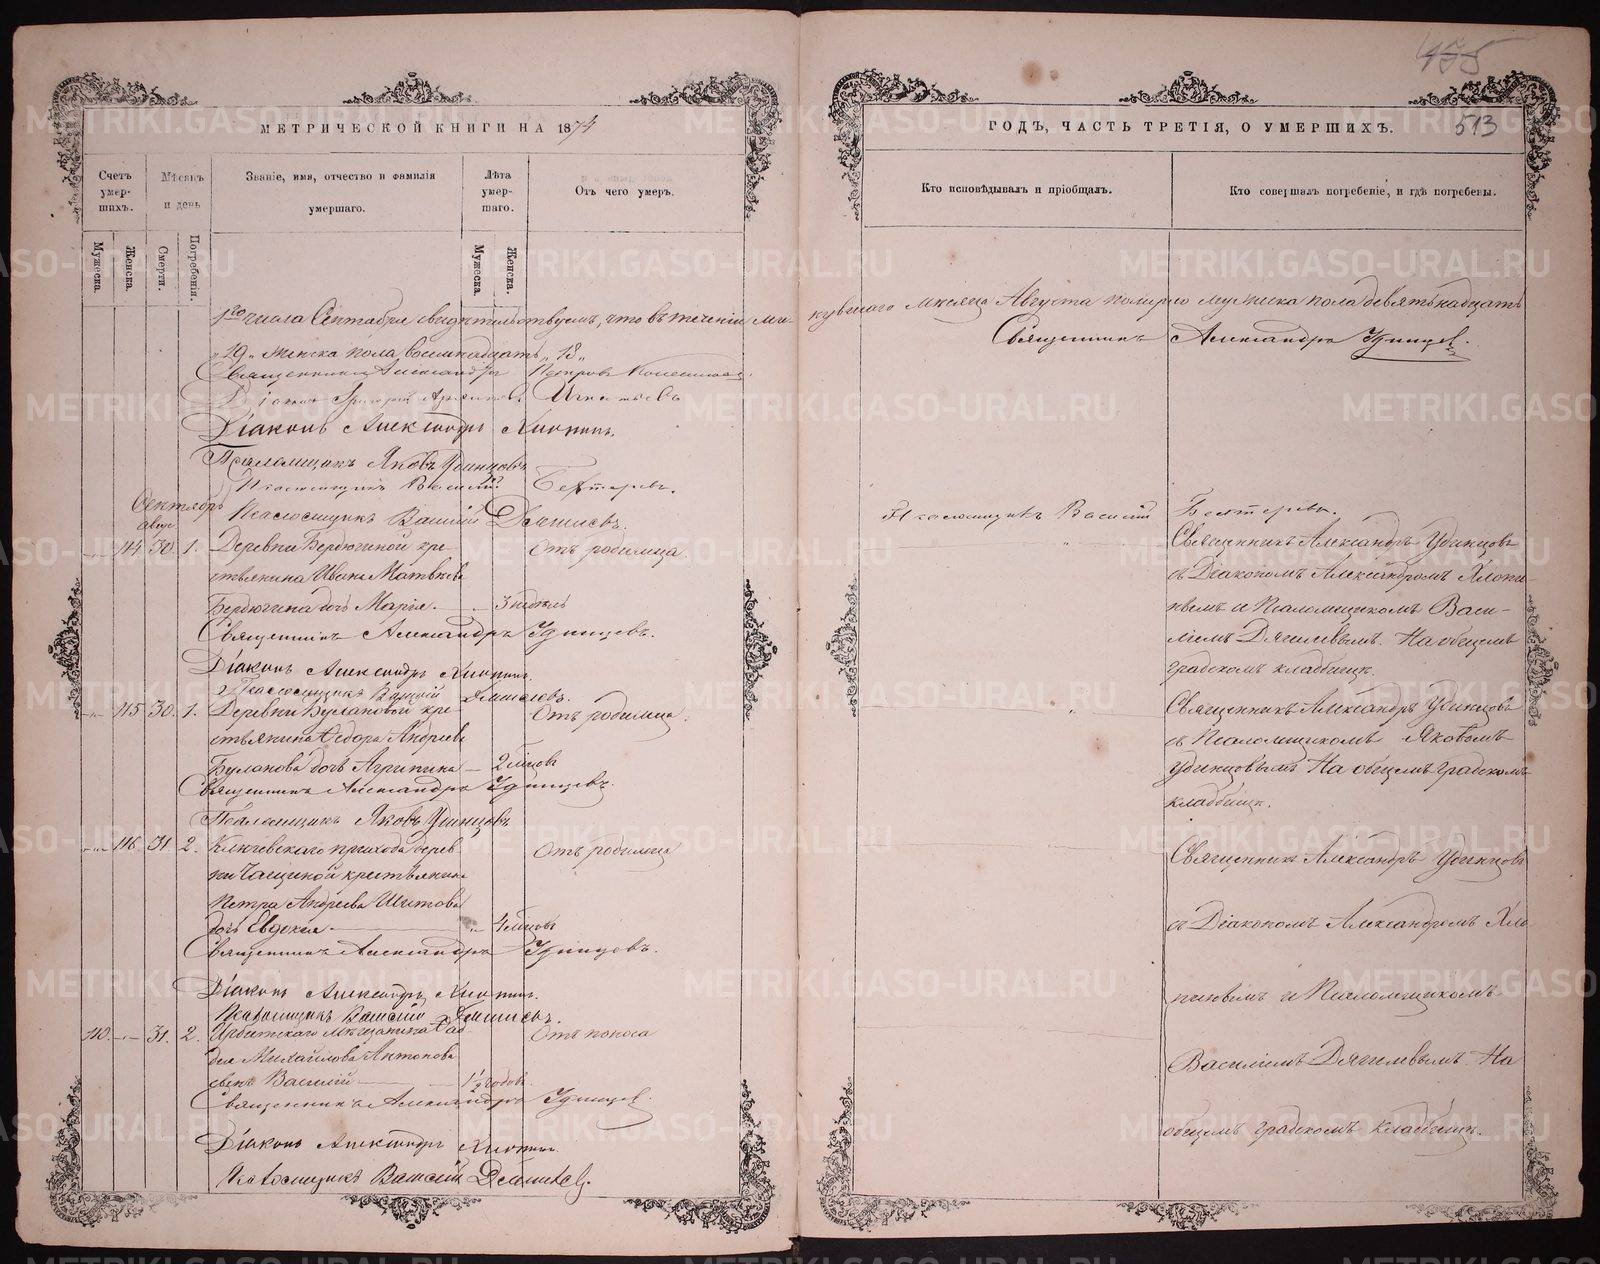 455
МЕТРИЧЕСКОЙ КНИГИ НА 1874
ГОДЪ, ЧАСТЬ ТРЕТІЯ, О УМЕРШИХЪ.
513
Счетъ умер-
шихъ.
Мѣсяцъ
и день
Званіе, имя, отчество и фамилія
умершаго.
Лѣта
умер-
шаго.
Отъ чего умеръ.
Кто исповѣдывалъ и пріобщалъ.
Кто совершалъ погребеніе, и гдѣ погребены.
Мужеска.
Женска.
Смерти.
Погребенія.
Мужеска.
Женска.
1го числа Сентября свидѣтельствуемъ, что въ теченіи ми-
нувшаго мѣсяца Августа померло мужеска пола девятьнадцать
„19„ женска пола восемнадцать „18„
Священникъ Александръ Удинцев.
Священникъ Александръ Петровъ
Діаконъ Григорій Игнатьевъ
Діаконъ Александръ Хлопинъ.
Псаломщикъ Яковъ Удинцовъ
Псаломщикъ Василий Бехтеревъ.
Псаломщикъ Василій Бехтеревъ.
Псаломщикъ Василій Дягилевъ.
Сентябрь
авгус
114 30 1. Деревни Бердюгиной кре-
стьянина Ивана Матвѣева
Бердюгина дочь Марія. 3 недѣль
Отъ родимца.
Священникъ Александръ Удинцовъ
съ Діакономъ Александромъ Хлопи-
нымъ и Псаломщикомъ Васи-
ліемъ Дягилевымъ. На общемъ
градскомъ кладбищѣ.
Священникъ Александръ Удинцевъ.
Діаконъ Александръ Хлопинъ.
Псаломщикъ Василій Дягилевъ.
115 30. 1. Деревни Булановой кре-
стьянина Ѳедора Андреева
Буланова дочь Агрипина 2 мѣсцовъ
Отъ родимца.
Священникъ Александръ Удинцовъ
съ Псаломщикомъ Яковомъ
Удинцовымъ На общемъ градскомъ
кладбищѣ.
Священникъ Александръ Удинцевъ.
Псаломщикъ Яковъ Удинцовъ
116 31. 2. Ключевскаго прихода дерев-
ни Чащиной крестьянина
Петра Андреева Шитова
дочь Евдокія 4 мѣсцовъ
Отъ родимца
Священникъ Александръ Удинцовъ
съ Діакономъ Александромъ Хло-
пинымъ и Псаломщикомъ
Василіемъ Дягилевымъ На
общемъ градскомъ кладбищѣ.
Священникъ Александръ Удинцовъ.
Діаконъ Александръ Хлопинъ.
Псаломщикъ Василій Дягилевъ.
110. 31. 2. Ирбитскаго мѣщанина Фад-
дея Михайлова Антонова
сынъ Василій 1½ годовъ.
Отъ поноса
Священникъ Александръ Удинцев.
Діаконъ Александръ Хлопинъ.
Псаломщикъ Василій Дягилевъ.